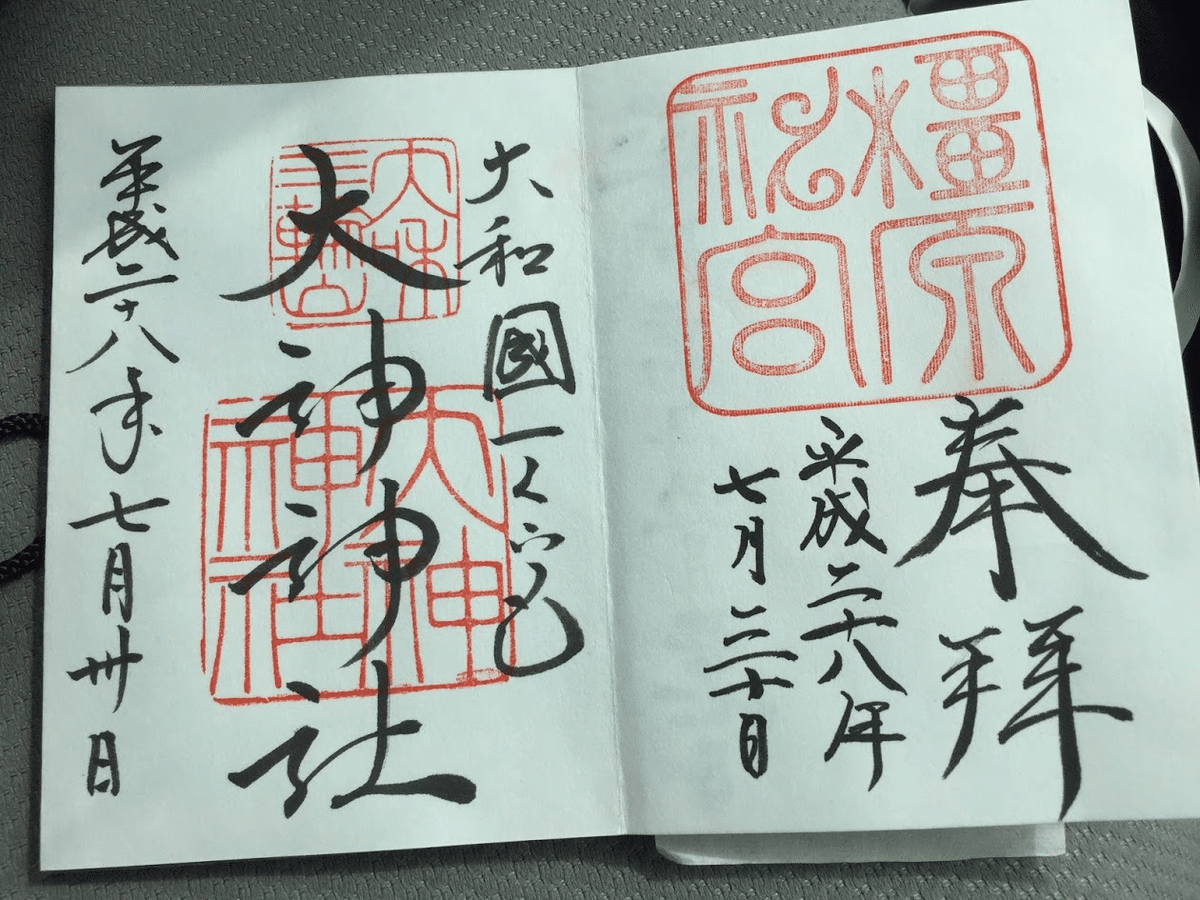 橿原
神宮
奉拝
平成二十八年
七月三十日
大和國一之宮
大神神社
大神
神社
平成二十八年七月卅日